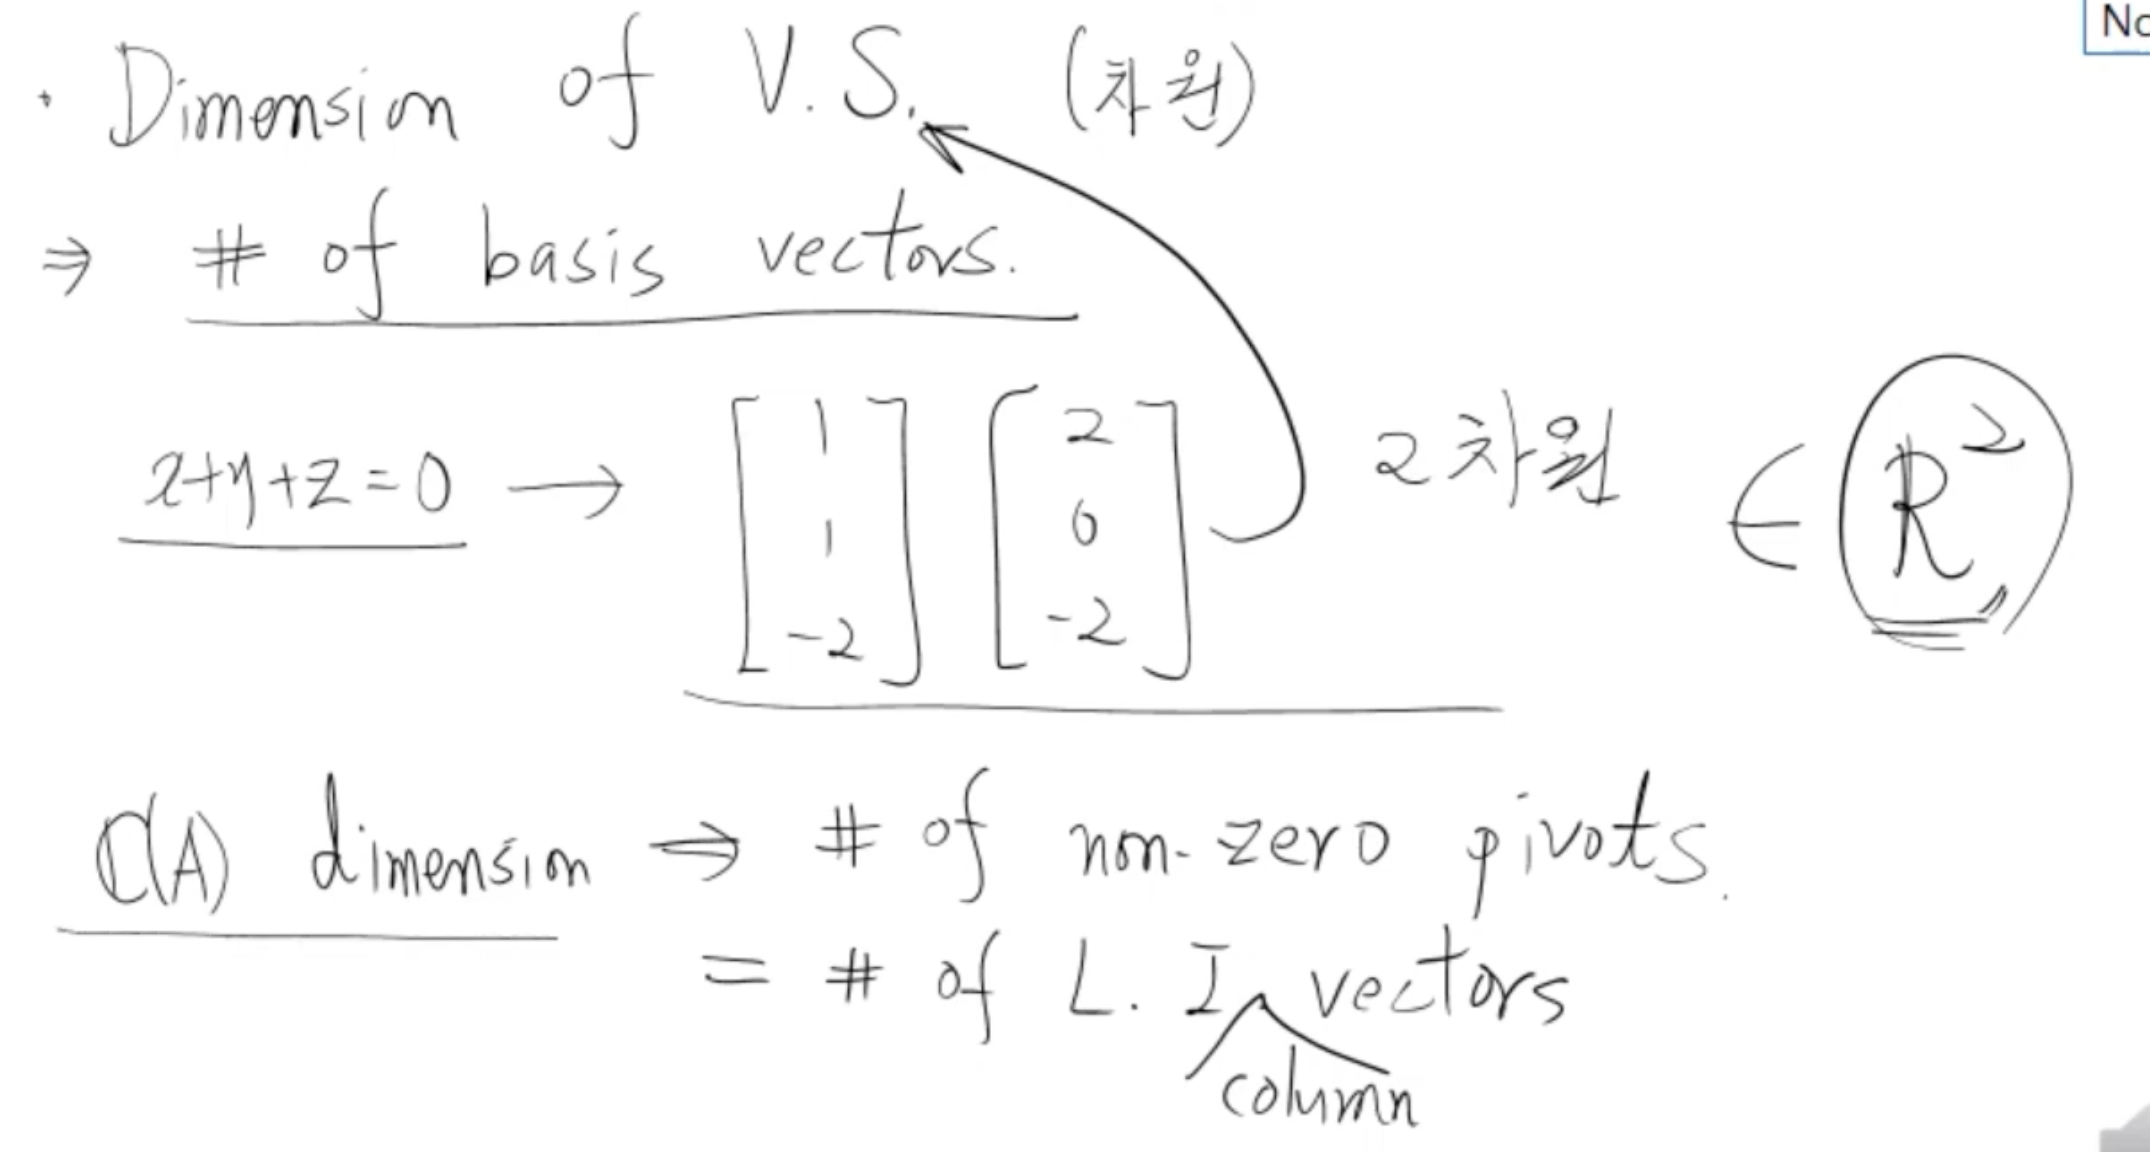 No
· Dimension of V.S. (차원)
⇒ # of basis vectors.
x+y+z=0 → [1 1 -2] [2 0 -2] 2차원 ∈ R²
C(A) dimension ⇒ # of non-zero pivots.
= # of L. I vectors
column